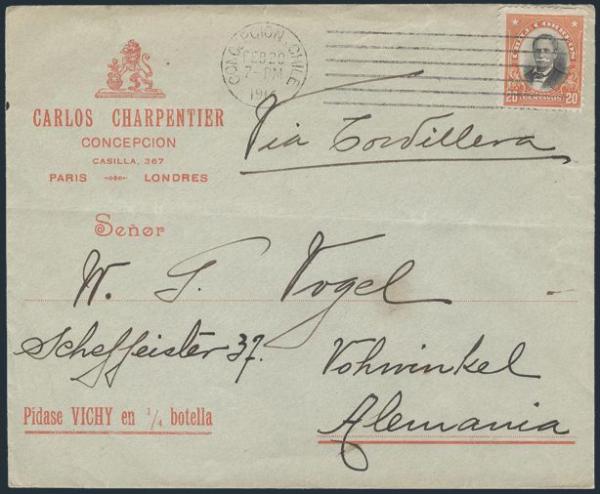 CONCEPCION, CHILE
FEB 28
7-PM
191
CHILE CORREOS
20 CENTAVOS 20
CARLOS CHARPENTIER
CONCEPCION
CASILLA, 367
PARIS LONDRES
Via Cordillera
Señor
W. G. Vogel
Scheffeister 37.
Vohwinkel
Pídase VICHY en 1/4 botella
Alemania